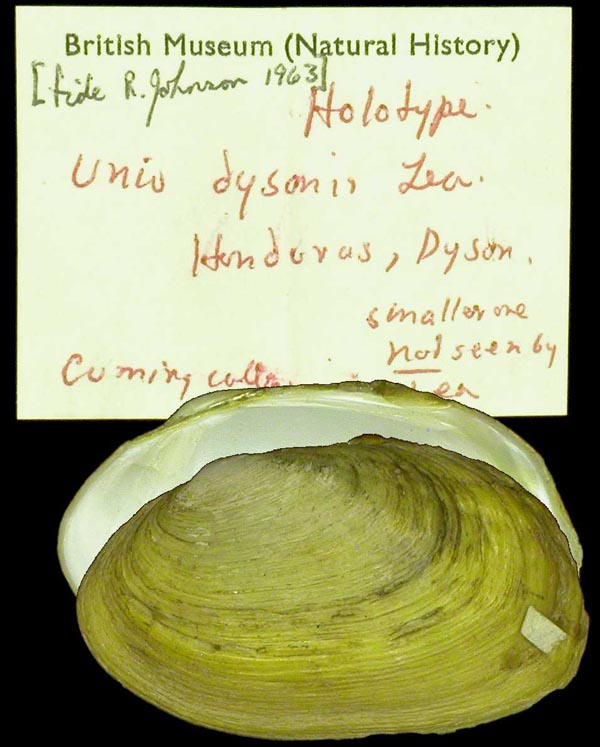 British Museum (Natural History)
[fide R. Johnson 1963]
Holotype.
Unio dysonii Lea.
Honduras, Dyson.
smaller one
not seen by
Lea
Cuming